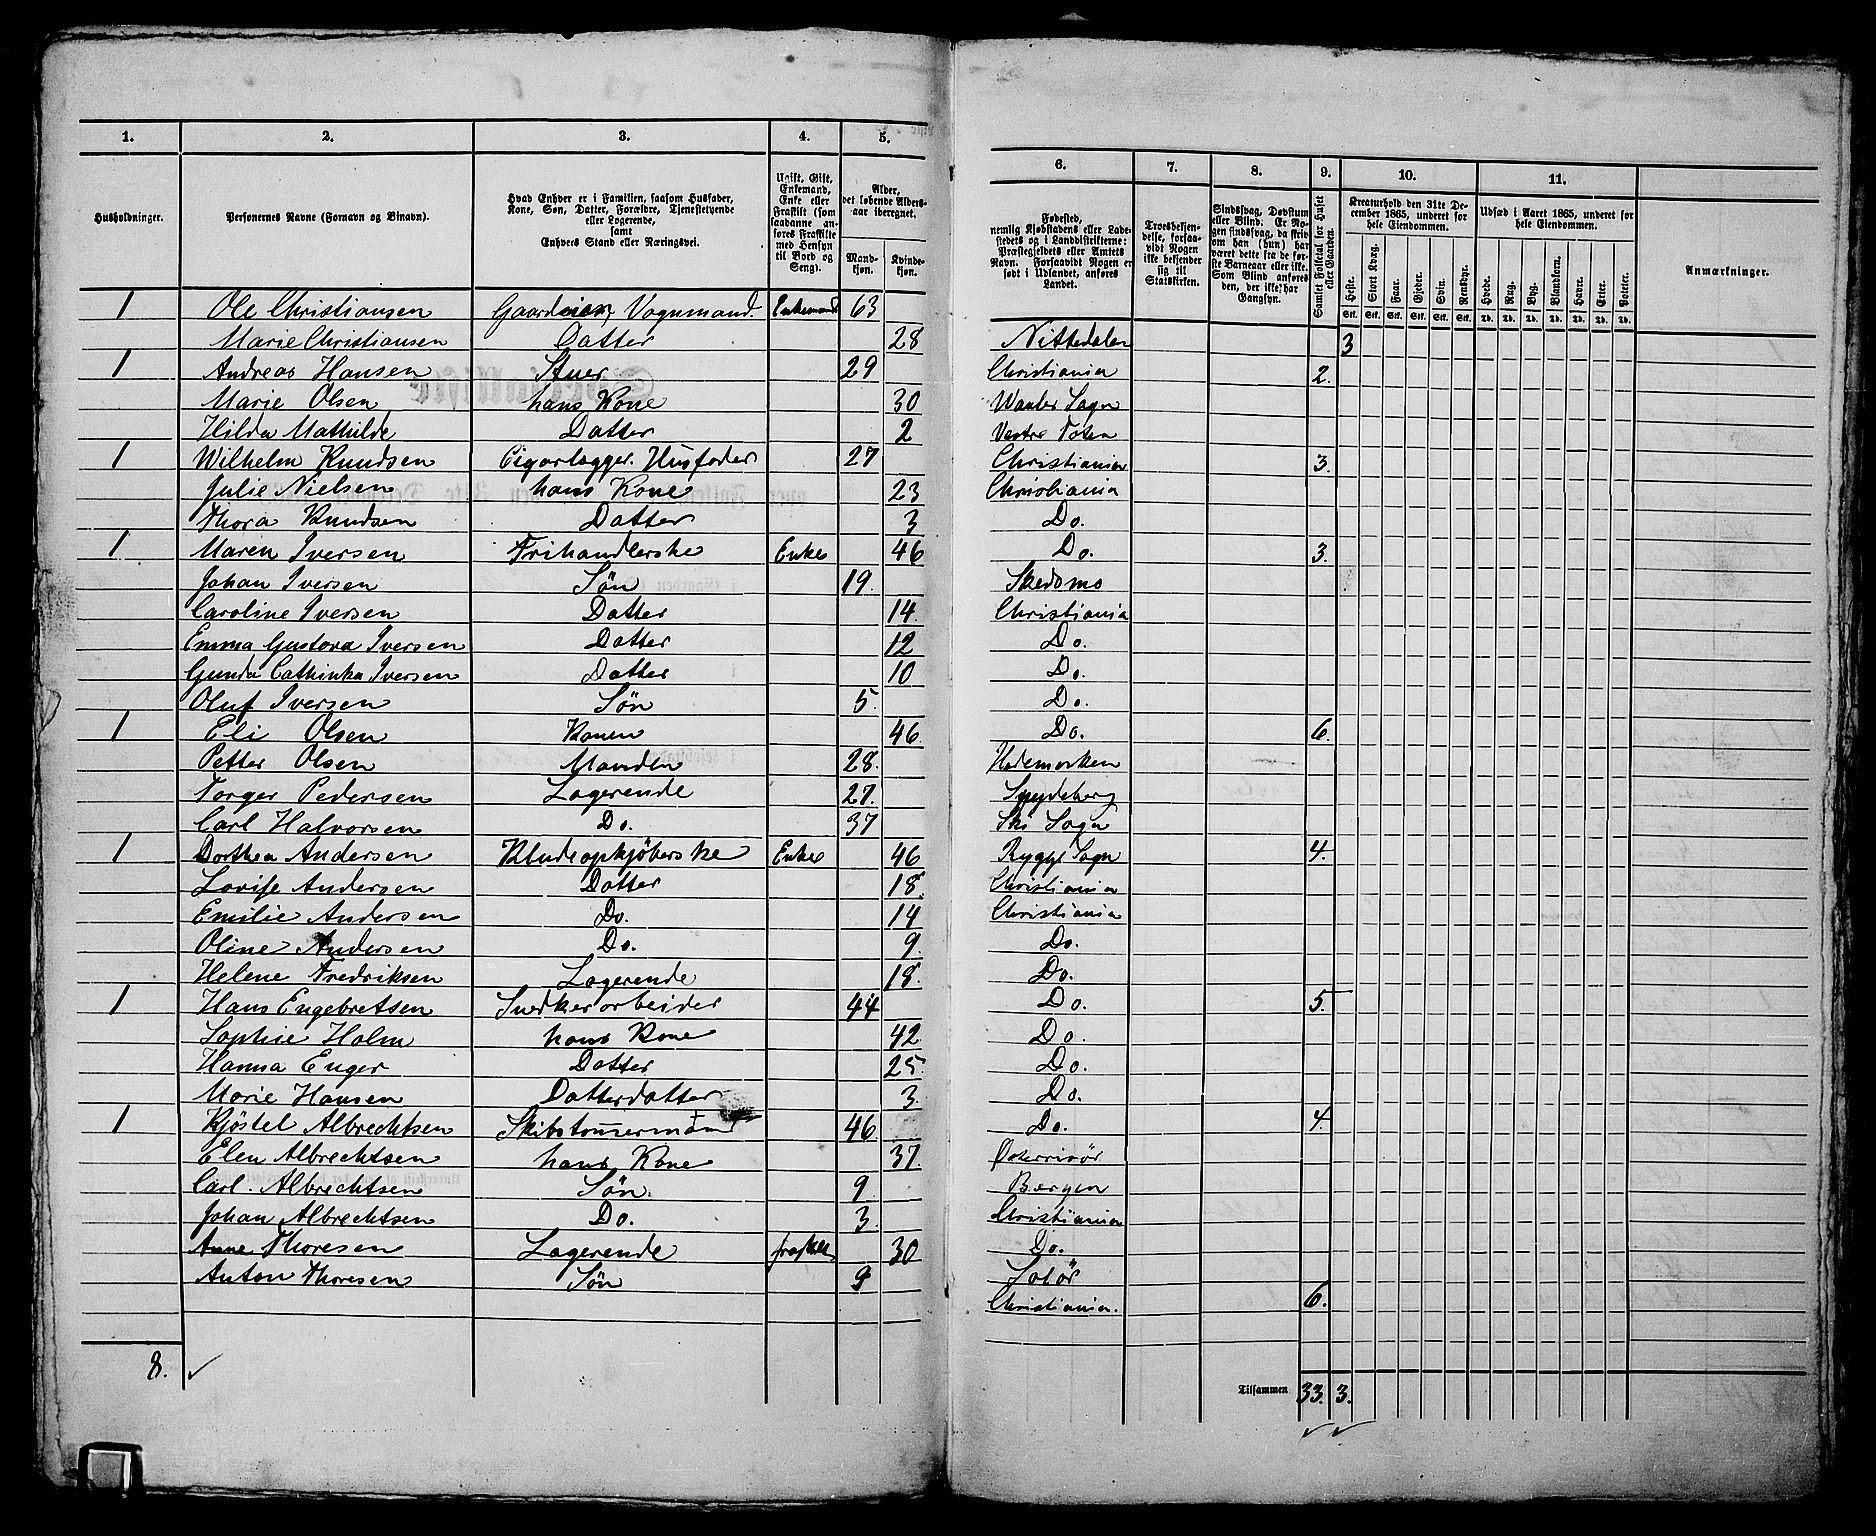 1. 2. 3. 4. 5.
Husholdninger. Personernes Navne (Fornavn og Binavn). Hvad Enhver er i Familien, saasom Husfader, Kone, Søn, Datter, Forældre, Tjenestetyende eller Logerende, samt Enhvers Stand eller Næringsvei. Ugift, Gift, Enkemand, Enke eller Fraskilt (som saadanne anføres Fraskilte med Hensyn til Bord og Seng). Alder, det løbende Alders-aar iberegnet.
Mand-kjøn. Kvinde-kjøn.
1 Ole Christiansen Gaardeier, Vognmand. Enkemand 63
Marie Christiansen Datter 28
1 Andreas Hansen Stuer 29
Marie Olsen hans Kone 30
Hilda Mathilde Datter 2
1 Wilhelm Knudsen Cigarlægger. Husfader 27
Julie Nielsen hans Kone 23
Thora Knudsen Datter 3
1 Maren Iversen Frihandlerske Enke 46
Johan Iversen Søn 19.
Caroline Iversen Datter 14.
Emma Gustava Iversen Datter 12
Gunda Cathinka Iversen Datter 10
Oluf Iversen Søn 5.
1 Eli Olsen Konen 46.
Petter Olsen Manden 28.
Torger Pedersen Logerende 27.
Carl Halvorsen Do. 37
1 Dorthea Andersen Kludeopkjøberske Enke 46
Lovise Andersen Datter 18.
Emilie Andersen Do. 14
Oline Andersen Do. 9.
Helene Fredriksen Logerende 18.
1 Hans Engebretsen Snedkerarbeider 44
Sophie Holm hans Kone 42
Hanna Enger Datter 25.
Marie Hansen Datterdatter 3.
1 Kjøstel Albrechtsen Skibstømermand 46
Elen Albrechtsen hans Kone 37.
Carl. Albrechtsen Søn. 9
Johan Albrechtsen Do. 3.
Anne Thoresen Logerende fraskilt 30
Anton Thoresen Søn 9
8.
6. 7. 8. 9. 10. 11.
Fødested, nemlig Kjøbstadens eller Ladestedets og i Landdistrikterne: Præstegjeldets eller Amtets Navn. Forsaavidt Nogen er født i Udlandet, anføres Landet. Troesbekjendelse, forsaavidt Nogen ikke bekjender sig til Statskirken. Sindssvag, Døvstum eller Blind. Er Nogen sindssvag, da skrives om han (hun) har været dette fra de første Barneaar eller ikke. Som Blind anføres den, der ikke har Gangsyn. Samlet Folketal for Huset eller Gaarden. Kreaturhold den 31te December 1865, underet for hele Eiendommen. Udsæd i Aaret 1865, underet for hele Eiendommen. Anmærkninger.
Heste. Stort Kvæg. Faar. Gjeder. Svin. Rensdyr. Hvede. Rug. Byg. Blandkorn. Havre. Erter. Poteter.
Stk. Stk. Stk. Stk. Stk. Stk. Td. Td. Td. Td. Td. Td. Td.
Nittedalen 3
Christiania 2.
Waaler Sogn
Vestre Toten
Christiania 3.
Christiania
Do.
Do. 3.
Skedsmo
Christiania
Do.
Do.
Do.
Do. 6.
Hedemarken
Spydeberg
Ski Sogn
Rygge Sogn 4.
Christiania
Christiania
Do.
Do.
Do. 5.
Do.
Do.
Do.
Do. 4.
Østerrisör
Bergen
Christiania
Do.
Solör
Christiania. 6.
Tilsammen 33. 3.